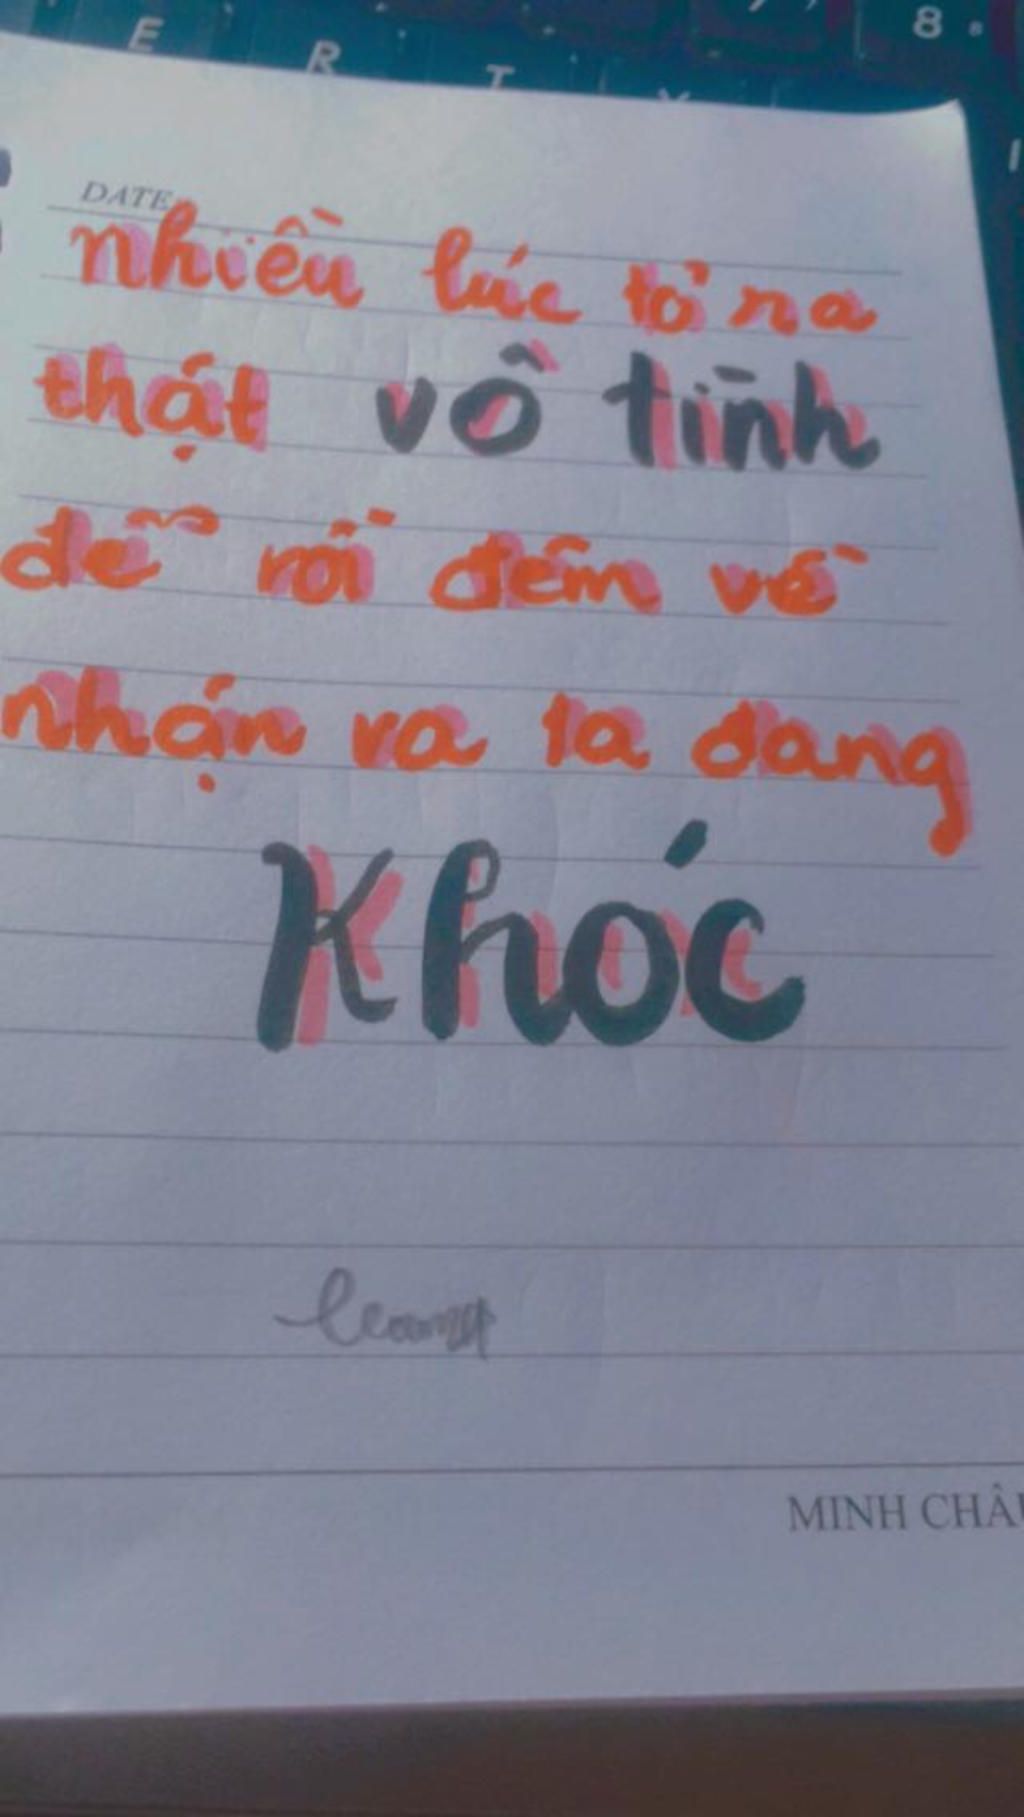 E R T Y 8
DATE
nhiều lúc tỏ ra
thật vô tình
để rồi đêm về
nhận ra ta đang
Khóc
MINH CHÂU